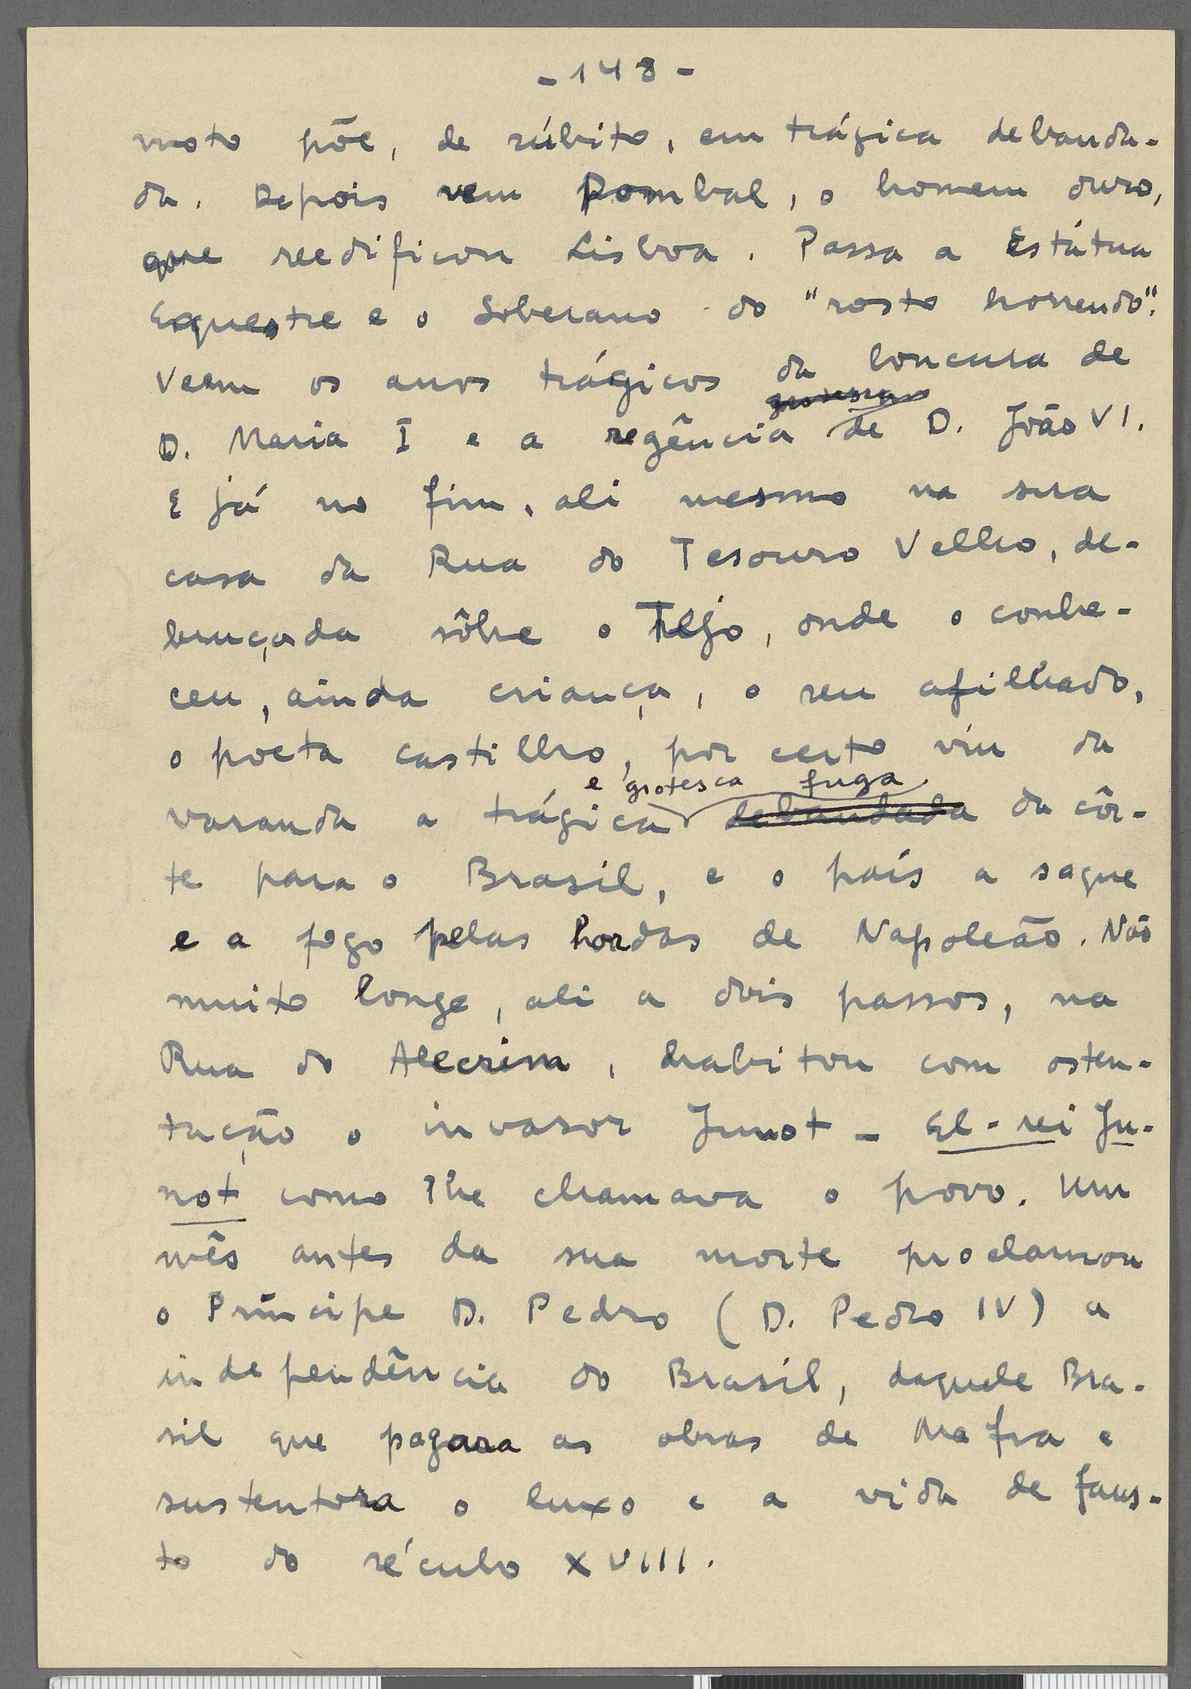 - 148 -
moto põe, de súbito, em trágica debanda-
da. Depois vem Pombal, o homem duro,
que reedificou Lisboa. Passa a Estátua
Equestre e o Soberano do "rosto horrendo".
Veem os anos trágicos da loucura de
D. Maria I e a regência de D. João VI.
E já no fim, ali mesmo na sua
casa da Rua do Tesouro Velho, de-
bruçada sôbre o Tejo, onde o conhe-
ceu, ainda criança, o seu afilhado,
o poeta Castilho, por certo viu da
e grotesca fuga
varanda a trágica debandada da côr-
te para o Brasil, e o país a saque
e a fogo pelas hordas de Napoleão. Não
muito longe, ali a dois passos, na
Rua do Alecrim, habitou com osten-
tação o invasor Junot - El-rei Ju-
not como lhe chamava o povo. Um
mês antes da sua morte proclamou
o Príncipe D. Pedro (D. Pedro IV) a
independência do Brasil, daquele Bra-
sil que pagara as obras de Mafra e
sustentara o luxo e a vida de faus-
to do século XVIII.